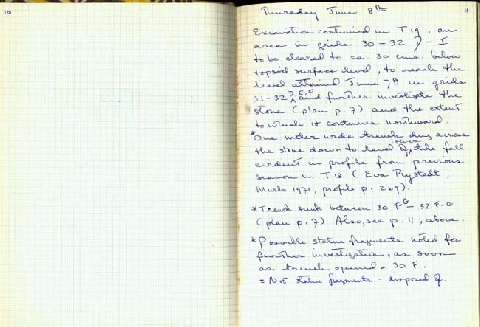 10
11
Thursday June 8th
Excavation continued in T 19, an
area in grids 30-32 I
to be cleared to ca. 30 cms. below
topsoil surface level, to reach the
level attained June in grids
31-32 and further investigate the
stone (plan p. 7) and the extent
to which it continues northward.
* One meter wide trench dug across
the slope down to level of tile fall
evident in profile from previous
season in T 18 (Eva Rystedt,
Murlo 1971, profile p. 209).
* Trench sunk between 30
(plan p. 7) Also, see p. 11, above.
* Possible statue fragments noted for
further investigation, as soon
as trench opened - 30 F.
= Not statue fragments - disposed of.